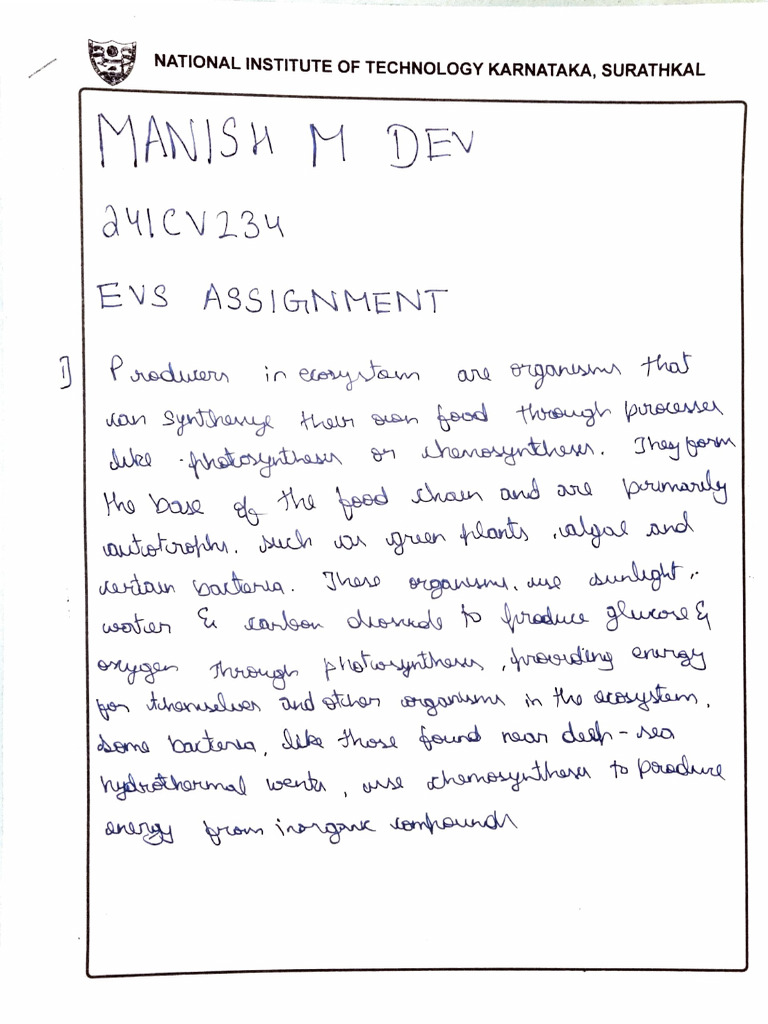 NATIONAL INSTITUTE OF TECHNOLOGY KARNATAKA, SURATHKAL
MANISH M DEV
241CV234
EVS ASSIGNMENT
1] Producers in ecosystem are organisms that
can synthesize their own food through processes
like photosynthesis or chemosynthesis. They form
the base of the food chain and are primarily
autotrophs. such as green plants, algae and
certain bacteria. These organisms, use sunlight,
water & carbon dioxide to produce glucose &
oxygen through photosynthesis, providing energy
for themselves and other organisms in the ecosystem.
Some bacteria, like those found near deep-sea
hydrothermal vents, use chemosynthesis to produce
energy from inorganic compounds